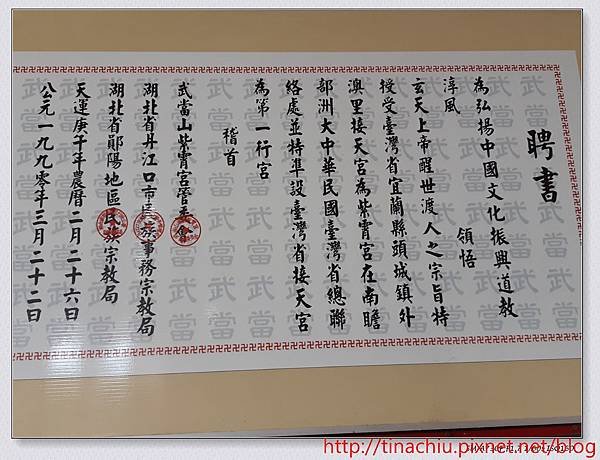 聘書
為弘揚中國文化振興道教
淳風 領悟
玄天上帝醒世渡人之宗旨特
授受臺灣省宜蘭縣頭城鎮外
澳里接天宮為紫霄宮在南瞻
部洲大中華民國臺灣省總聯
絡處並特準設臺灣省接天宮
為第一行宮
稽首
武當山紫霄宮管委會
湖北省丹江口市民族事務宗教局
湖北省鄖陽地區民族宗教局
天運庚午年農曆二月二十六日
公元一九九零年三月二十二日
武當
http://tinachiu.pixnet.net/blog